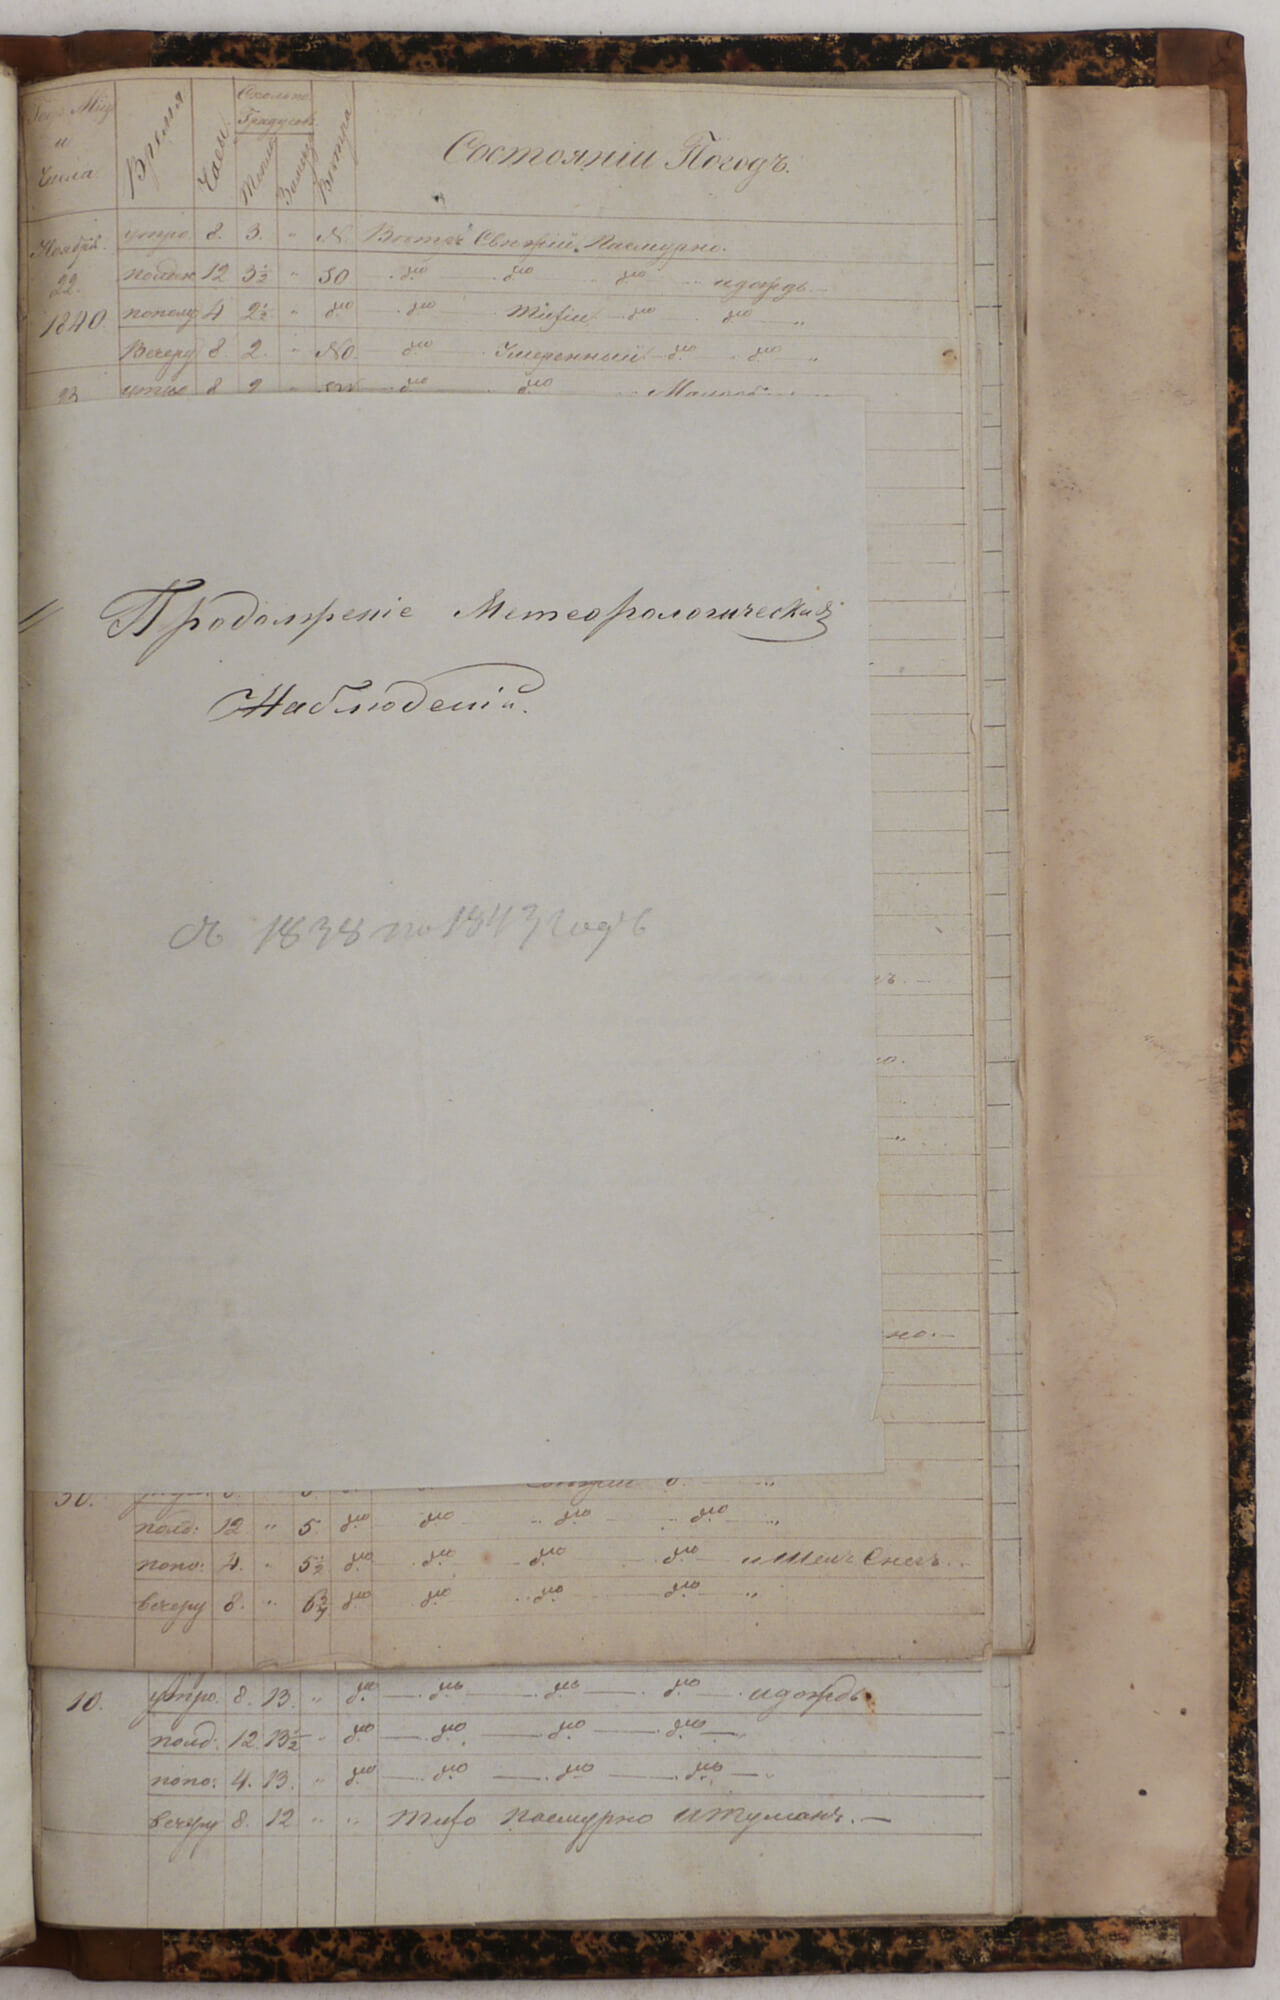 Годъ Мѣц. и Числа Время Часы Сколько Градусовъ Тепла Вѣтра Состоянiи Погодъ.
Ноября утро. 8. 3. " N. Вѣтръ Свѣжiй. Пасмурно.
22. полдн 12 3½ " SO д.то д.то д.то и дождь.
1840. пополу 4 2½ " д.то д.то Тихiй д.то д.то "
Вечеру 8. 2. " NO. д.то Умеренный д.то д.то "
23 утро 8 2 " д.то д.то
Продолженiе Метеорологическихъ
Наблюденiй.
съ 1838 по 1843 годъ
но.
30.
полд: 12 " 5. д.то д.то д.то д.то "
попо: 4. " 5½ д.то д.то д.то д.то и Шелъ Снегъ.
вечеру 8. " 6¾ д.то д.то д.то д.то "
10. утро. 8. 13. " д.то д.то д.то д.то и дождь
полд: 12. 13½ " д.то д.то д.то д.то
попо: 4. 13. " д.то д.то д.то д.то "
вечеру 8. 12 " " тихо пасмурно и туманъ.